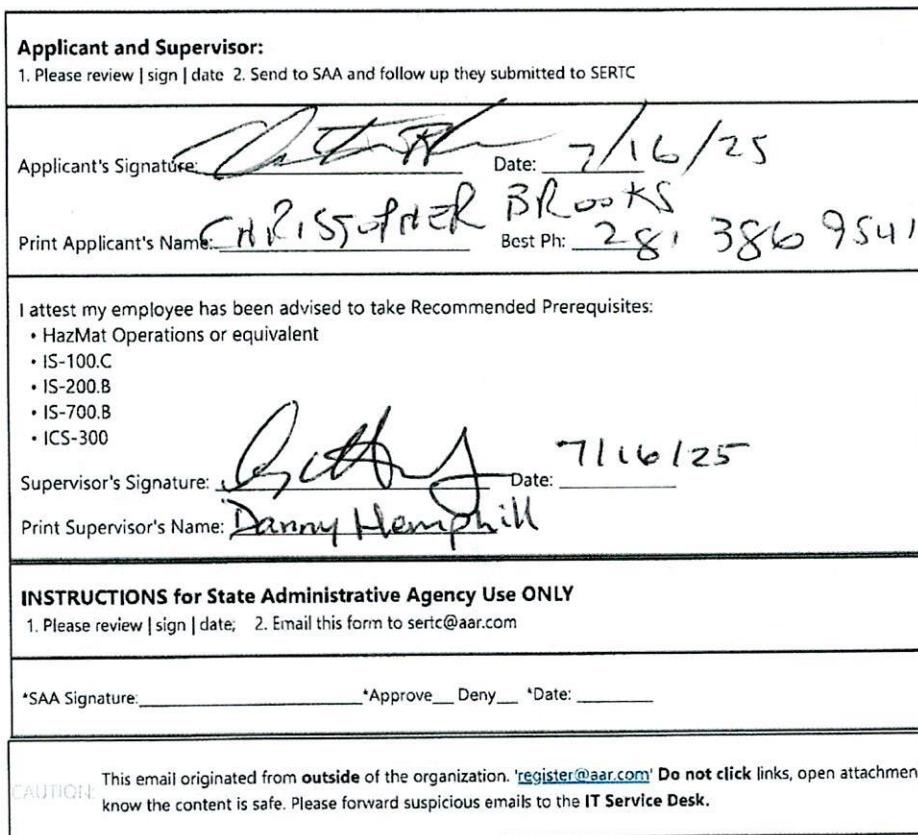 Applicant and Supervisor:
1. Please review | sign | date 2. Send to SAA and follow up they submitted to SERTC
Applicant's Signature: Date: 7/16/25
Print Applicant's Name: CHRISTOPHER BROOKS Best Ph: 281 386 9541
I attest my employee has been advised to take Recommended Prerequisites:
• HazMat Operations or equivalent
• IS-100.C
• IS-200.B
• IS-700.B
• ICS-300
Supervisor's Signature: Date: 7/16/25
Print Supervisor's Name: Danny Hemphill
INSTRUCTIONS for State Administrative Agency Use ONLY
1. Please review | sign | date; 2. Email this form to sertc@aar.com
*SAA Signature:____________________ *Approve__ Deny__ *Date: _______
CAUTION: This email originated from outside of the organization. 'register@aar.com' Do not click links, open attachmen
know the content is safe. Please forward suspicious emails to the IT Service Desk.